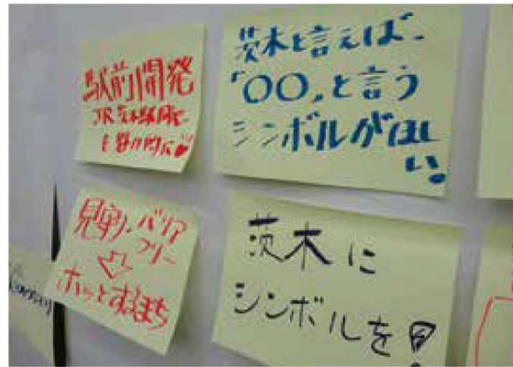 駅前開発
JR茨木駅周辺
を魅力的に
茨木と言えば、
「○○」と言う
シンボルがほし
い。
見守り、バリア
フリー
ホッとするまち
茨木に
シンボルを!